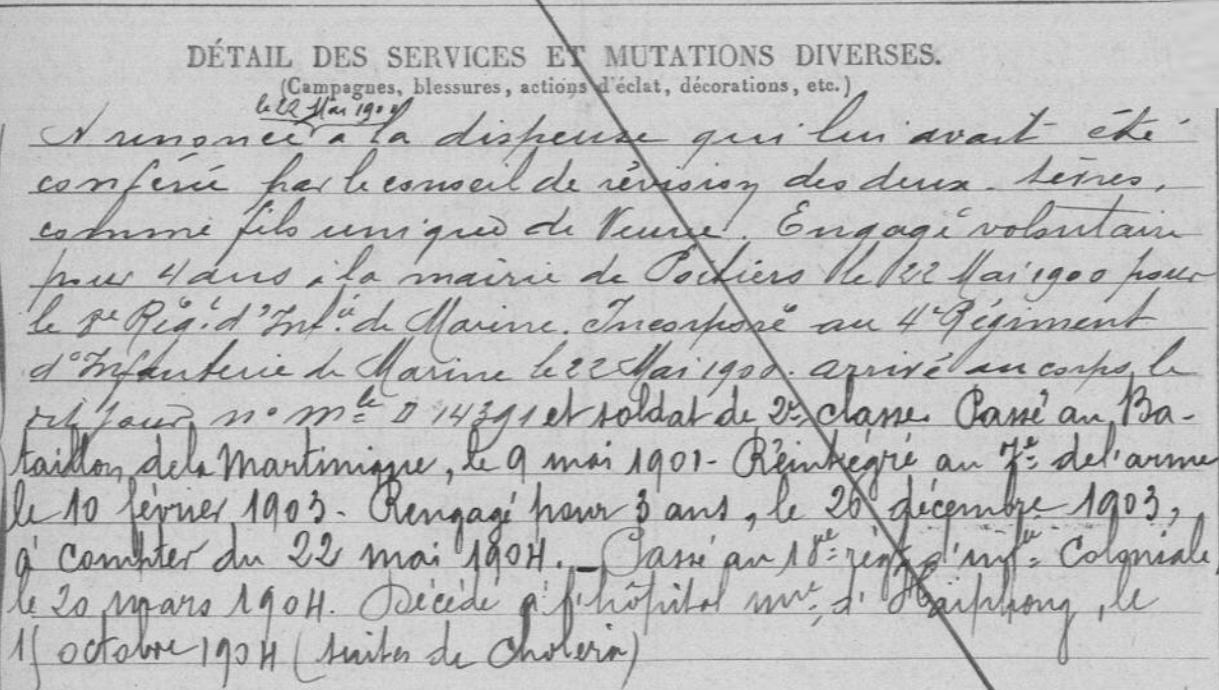 DÉTAIL DES SERVICES ET MUTATIONS DIVERSES.
(Campagnes, blessures, actions d'éclat, décorations, etc.)
le 22 Mai 1900
A renoncé à la dispense qui lui avait été
conférée par le conseil de révision des deux-Sèvres,
comme fils unique de Veuve. Engagé volontaire
pour 4 ans à la mairie de Poitiers le 22 Mai 1900 pour
le 8e Régt d'Infie de Marine. Incorporé au 4e Régiment
d'Infanterie de Marine le 22 Mai 1900. arrivé au corps le
dit jour, no mle 14391 et soldat de 2e classe. Passé au Ba-
taillon de la Martinique, le 9 mai 1901 - Réintégré au 7e de l'arme
le 10 février 1903 - Rengagé pour 3 ans, le 26 décembre 1903,
à compter du 22 mai 1904. - Passé au 18e régt d'infie Coloniale
le 20 mars 1904. Décédé à l'hôpital mre d'Haïphong, le
15 octobre 1904 (suites de Choléra)